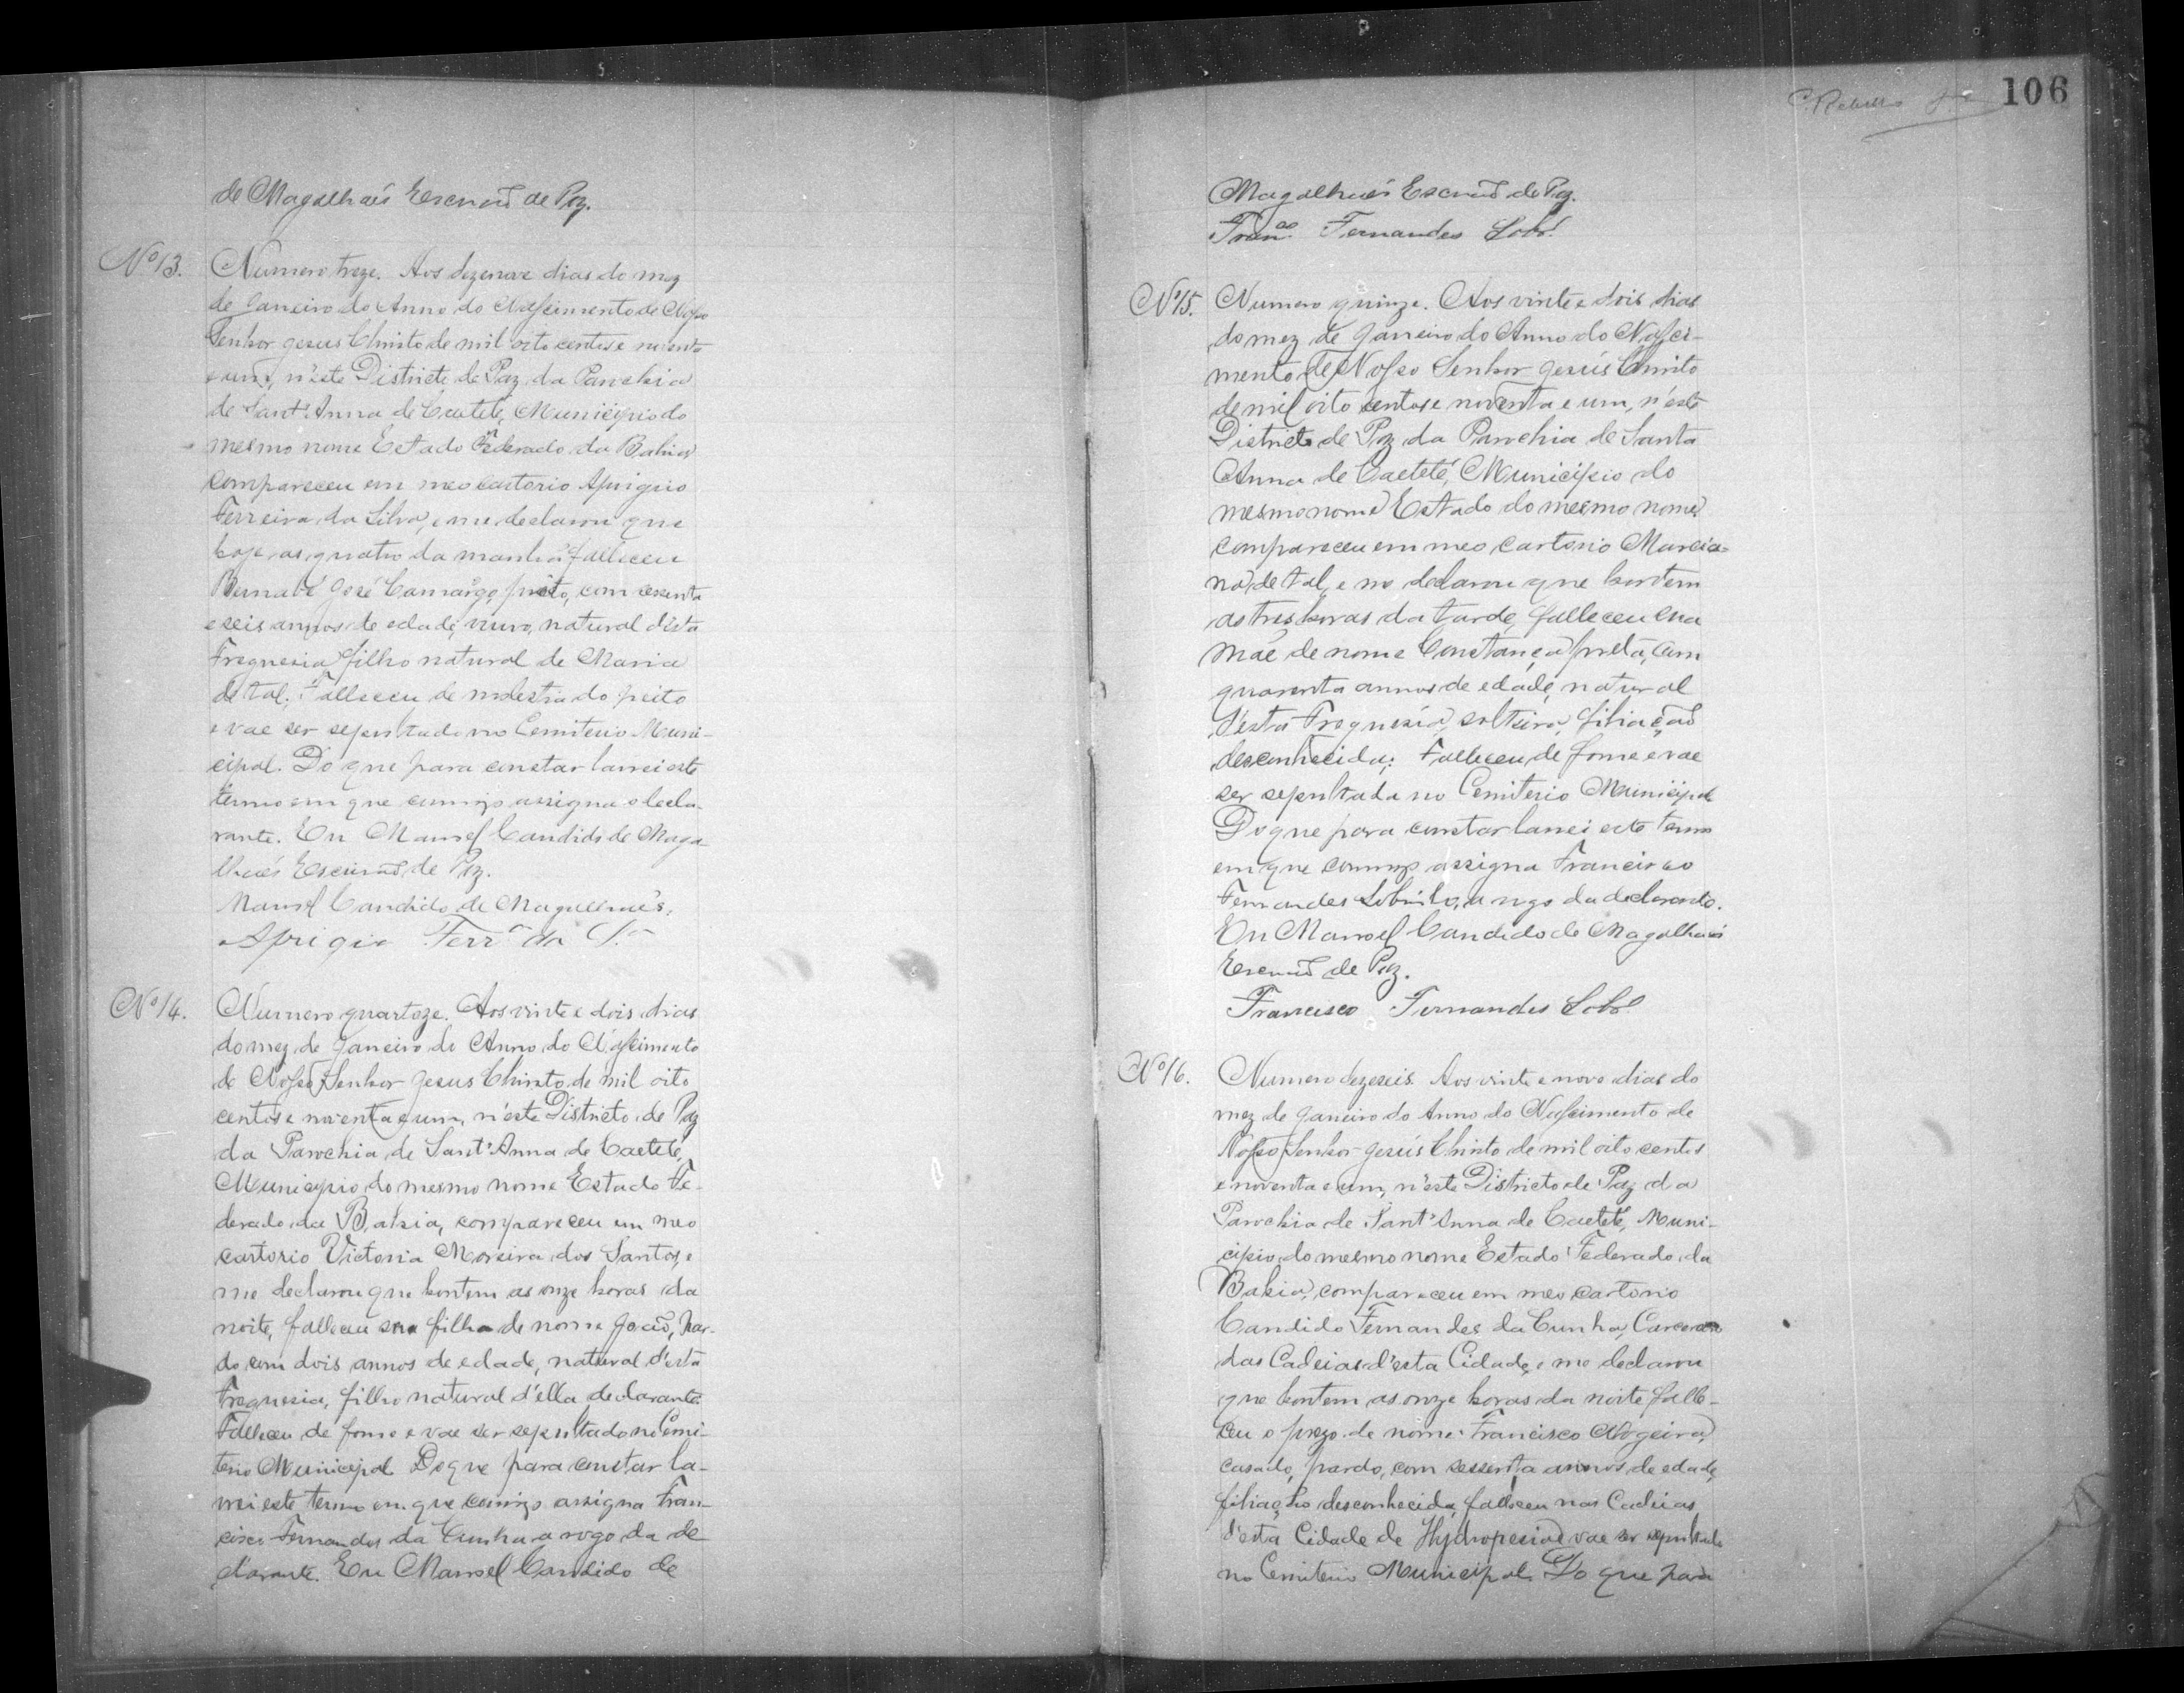 de Magalhaẽs Escrivaõ de Paz.
Nº 13. Numero treze. Aos dezenove dias do mez
de Janeiro do Anno do Nascimento de Nosso
Senhor Jesus Christo de mil oito centos e noventa
e um, n'este Districto de Paz da Parochia
de Sant'Anna de Caeteté, Municipio do
mesmo nome Estado Federado da Bahia
compareceu em meo cartorio Aprigio
Ferreira da Silva, e me declarou que
hoje as quatro da manhã falleceu
Bernabé José Camargo, preto, com sesenta
e seis annos de edade, viuvo, natural désta
Freguesia filho natural de Maria
de tal. Falleceu de molestia do peito
e vae ser sepultado no Cemiterio Muni-
cipal. Do que para constar lavrei este
termo em que comigo assigna o decla-
rante. Eu Manoel Candido de Maga-
lhaẽs Escrivaõ de Paz.
Manoel Candido de Magalhaẽs.
Aprigio Ferrª da Sª
Nº 14. Numero quartoze. Aos vinte e dois dias
do mez de Janeiro do Anno do Nascimento
de Nosso Senhor Jesus Christo de mil oito
centos e noventa e um, n'este Districto de Paz
da Parochia de Sant'Anna de Caeteté,
Municipio do mesmo nome Estado Fe-
derado da Bahia, compareceu em meo
cartorio Victoria Moreira dos Santos, e
me declarou que hontem as onze horas da
noite, falleceu seu filho de nome Joaõ, par-
do com dois annos de edade, natural d'esta
Freguesia, filho natural d'ella declarante.
Falleceu de fome e vae ser sepultado no Cemi-
terio Municipal. Do que para constar la-
vrei este termo em que comigo assigna Fran-
cisco Fernandes da Cunha a rogo da de-
clarante. Eu Manoel Candido de
106
Magalhaẽs Escrivaõ de Paz.
Franco Fernandes Lobº
Nº 15. Numero quinze. Aos vinte e dois dias
do mez de Janeiro do Anno do Nasci-
mento de Nosso Senhor Jesús Christo
de mil oito centos e noventa e um, n'este
Districto de Paz da Parochia de Santa
Anna de Caeteté, Municipio do
mesmo nome Estado do mesmo nome
compareceu em meo cartorio Marcia-
no de tal, e me declarou que hontem
as tres horas da tarde, falleceu sua
mãe de nome Constança preta, com
quarenta annos de edade, natural
d'esta Freguesia, solteira, filiaçaõ
desconhecida; Falleceu de fome e vae
ser sepultada no Cemiterio Municipal
Do que para constar lavrei este termo
em que comigo assigna Francisco
Fernandes Lobinho, a rogo da declarante.
Eu Manoel Candido de Magalhaẽs
Escrivaõ de Paz.
Francisco Fernandes Lobº
Nº 16. Numero dezeseis. Aos vinte e nove dias do
mez de Janeiro do Anno do Nascimento de
Nosso Senhor Jesús Christo de mil oito centos
e noventa e um, n'este Districto de Paz da
Parochia de Sant'Anna de Caeteté, Muni-
cipio do mesmo nome Estado Federado da
Bahia, compareceu em meo cartorio
Candido Fernandes da Cunha, Carcereiro
das Cadeias d'esta Cidade, e me declarou
que hontem as onze horas da noite falle-
ceu o prezo de nome Francisco Nogeira,
casado, pardo, com sessenta annos de edade,
filiação desconhecida, falleceu nas Cadeias
d'esta Cidade de Hydropesia e vae ser sepultado
no Cemiterio Municipal. Do que para